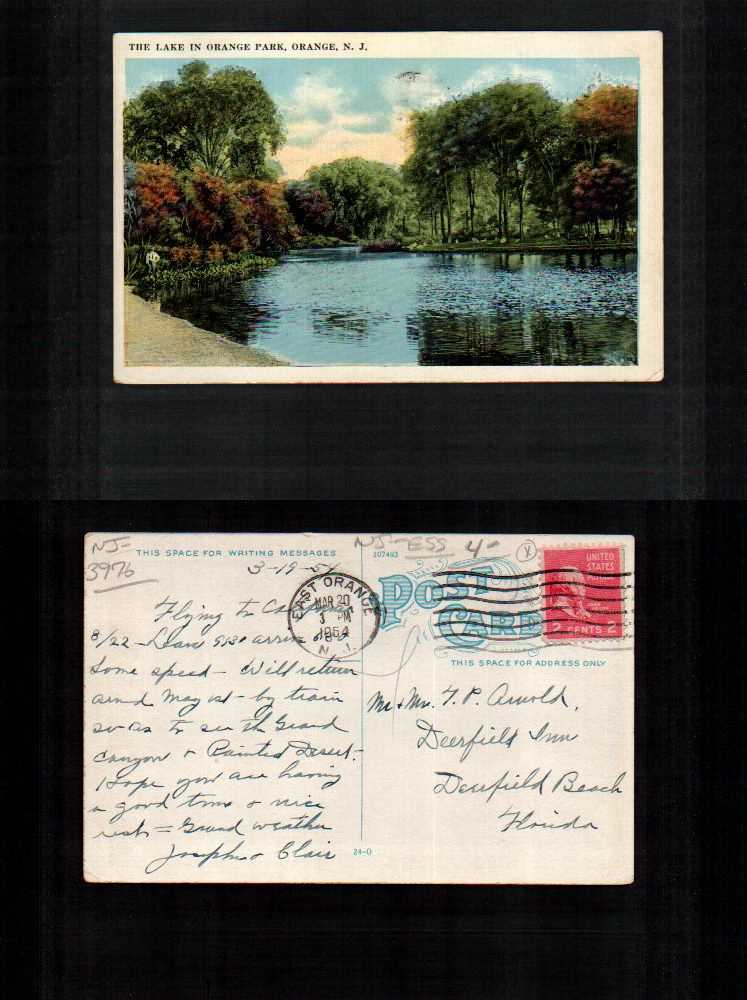 THE LAKE IN ORANGE PARK, ORANGE, N. J.
NJ-
3976
NJ-ESS 4-
X
THIS SPACE FOR WRITING MESSAGES
207493
3-19-54
POST
CARD
EAST ORANGE
MAR 20
3 PM
1954
N. J.
UNITED
STATES
POSTAGE
2 CENTS 2
THIS SPACE FOR ADDRESS ONLY
Flying to
3/22 - Leave 9:30 arrive
Some speed - Will return
around May 1st - by train
so as to see the Grand
Canyon & Painted Desert.
Hope you are having
a good time & nice
rest = Grand weather
Joseph & Clair
Mr. & Mrs. F. P. Arnold,
Deerfield Inn
Deerfield Beach
Florida
24-O